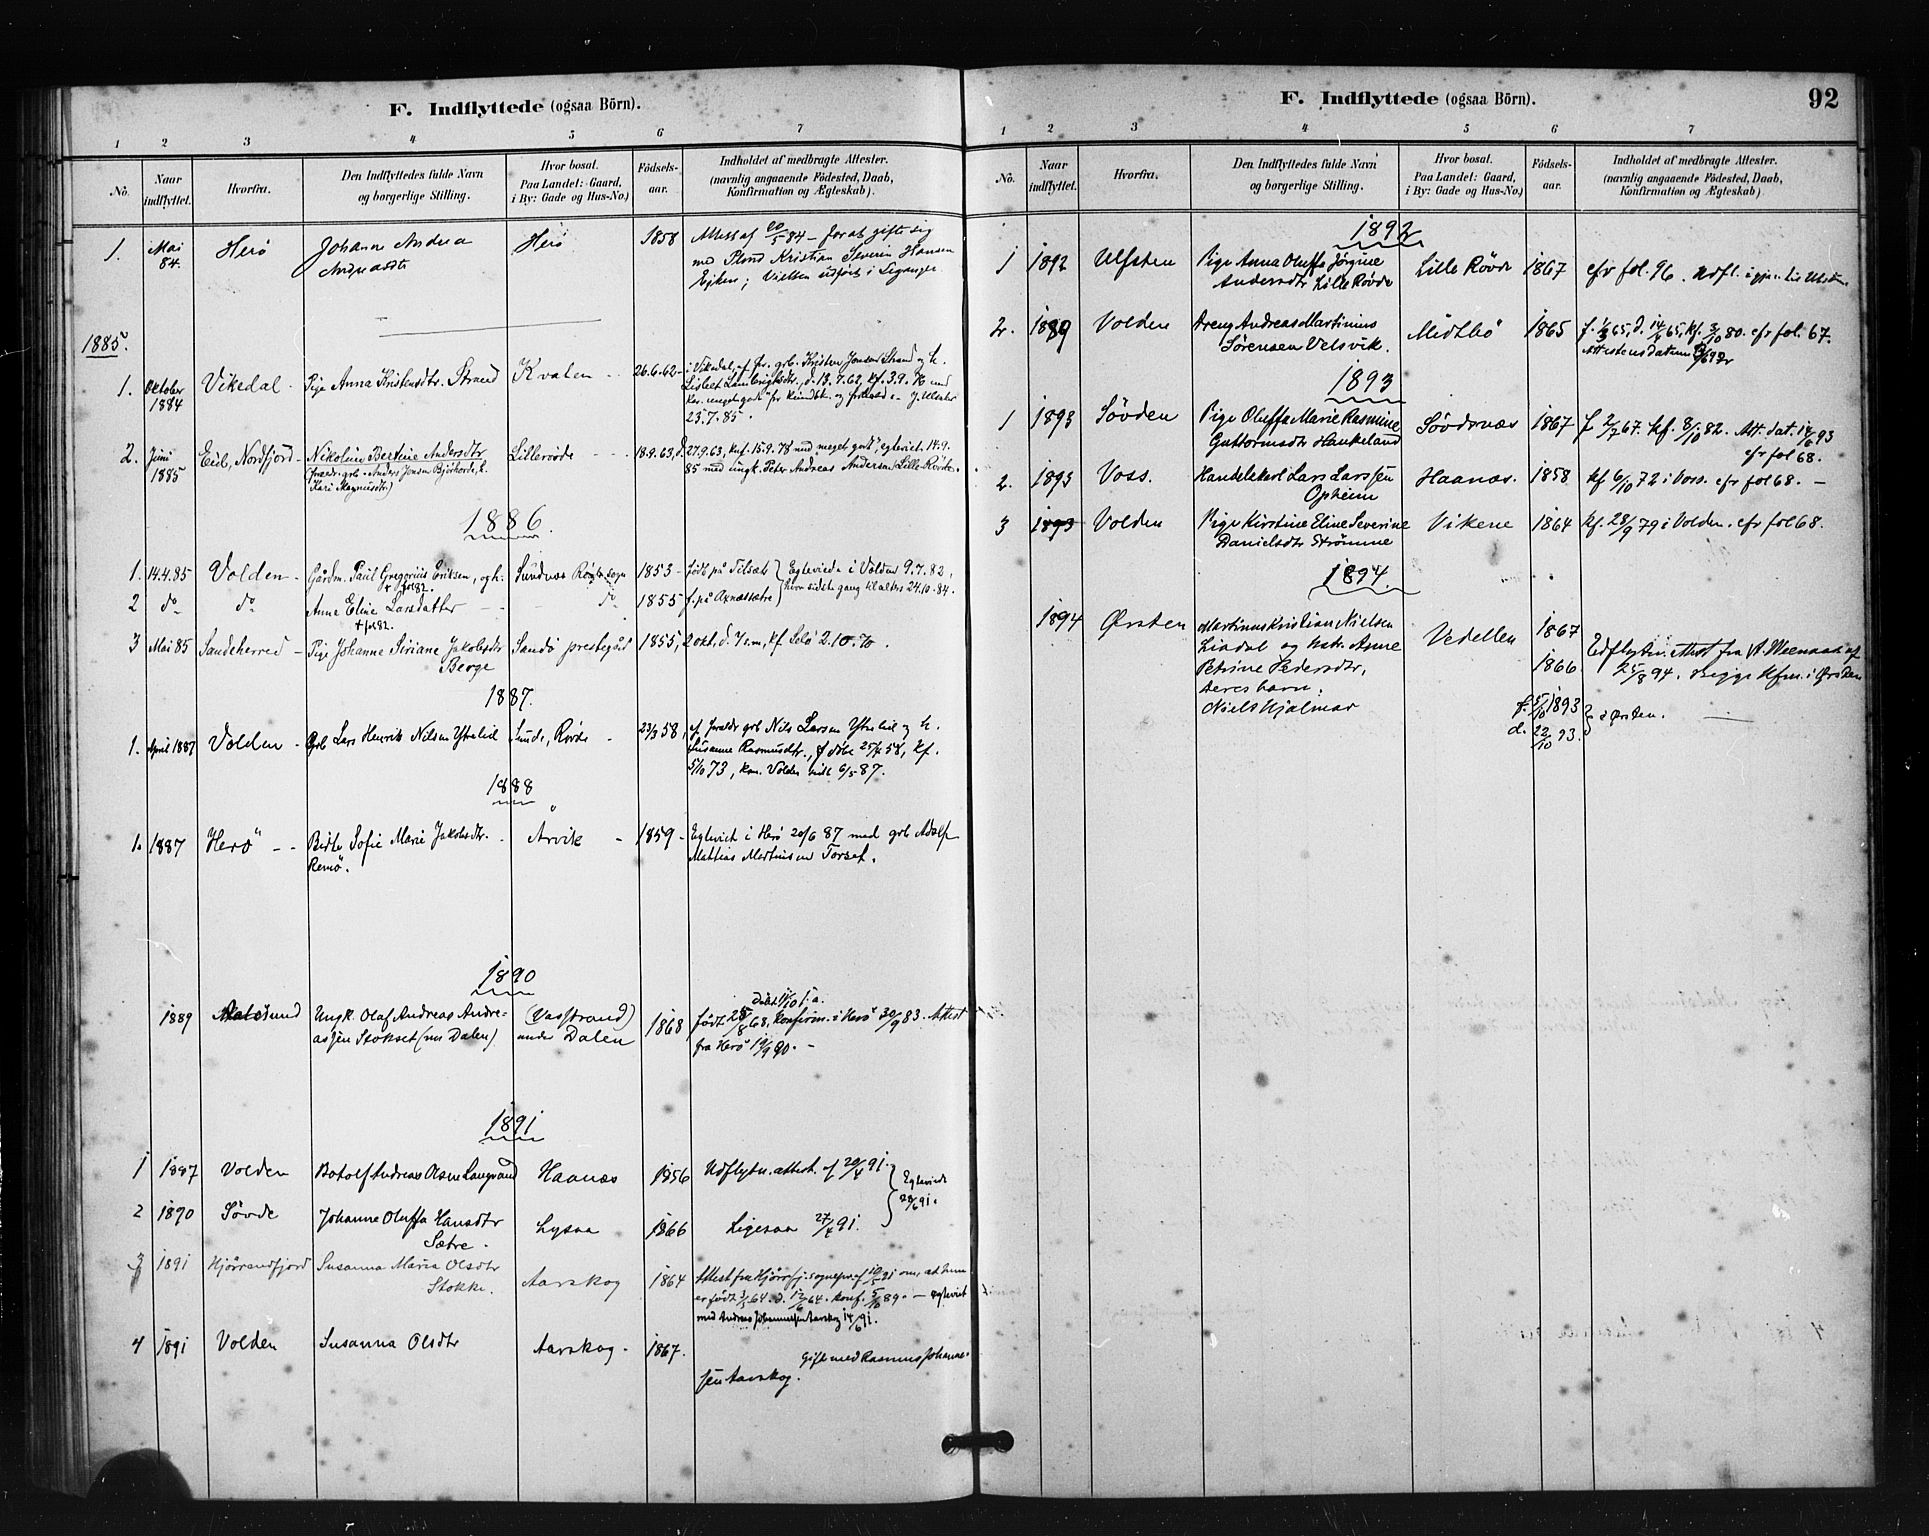 F. Indflyttede (ogsaa Börn).
1 2 3 4 5 6 7
No. Naar indflyttet. Hvorfra. Den Indflyttedes fulde Navn og borgerlige Stilling. Hvor bosat. Paa Landet: Gaard, i By: Gade og Hus-No.) Födsels-aar. Indholdet af medbragte Attester. (navnlig angaaende Födested, Daab, Konfirmation og Ægteskab).
1. Mai 84. Herö Johanne Andrea Herö 1858 Attest af 20/5 84 – for at gifte sig
Andreasdtr med Kristian Severin Hansen
Eiken; Vielsen udført i
1885.
1. Oktober 1884 Vikedal - Pige Anna Kristensdtr. Strand Kvalen - 26.6.62 - i Vikedal, af for. grb. Kristen Jonsen Strand og h.
Lisbet Lambrigtsdtr., d. 13.7.62, kf. 3.9.76 med
kar. meget godt
23.7.85.
2. Juni 1885 Eid, Nordfjord - Nikoline Bertine Andersdtr Lilleröde - 18.9.63, d. 27.9.63, konf. 15.9.78 med meget godt, egteviet 14.9.
(forældr. grb. Anders Jonsen h. 85 med ungk. Peter Andreas Andersen Lille-Rövde.
Kari Magnusdtr.)
1886.
1. 14.4.85 Volden - Gårdm. Paul Gregorius Eriksen, og h. Sundnes Røvde sogn 1853 - født på Egteviede i Volden 9.7.82,
2 do do Anne Eline Larsdatter - do 1855 f. på hvor sidste gang til alters 24.10.84.
3 Mai 85 Sandeherred - Pige Johanne Siriane Jakobsdtr Sandö prestegård 1855, 2 okt, d. 7 s.m., kf. Selö 2.10.70.
Berge
1887.
1. April 1887 Volden - Grb Lars Henrik Nilsen Ytrelid Sunde, Røvde - 23/3 58, af forældr. grb Nils Larsen Ytrelid og h.
Susanne Rasmusdtr., døbt 25/4 58, kf.
5/10 73, kom. Volden sidst 6/5 87.
1888
1. 1887 Herö - - Birte Sofie Marie Jakobsdtr. Arvik - 1859 - Egteviet i Herö 20/6 87 med grb Adolf
Remö. Mattias Martinsen Torset.
1890
1889 Aalesund Ungk. Olaf Andreas Andre= (Vasstrand) 1868 født 25/8 68. Døbt 11/10 s.a. konfirm. i Herö 30/9 83. Attest
assen Stokset (nu Dalen) under Dalen fra Herö 19/9 90. -
1891
1 1887 Volden Botolf Andreas Olsen Langvand Haanæs 1856 Udflytn. attest. af 20/4 91. Egteviede
2 1890 Søvde Johanne Oluffa Hansdtr Lysaa 1866 Ligesaa 27/4 91. 28/6 91.
Sætre.
3 1891 Hjørrendfjord Susanna Maria Olsdtr Aarskog 1864 Attest fra Hjørrfj. sognepr. af 10/5 91 om, at hun
Stokke. er født 3/5 64. d. 12/6 64. konf. 5/10 89. - egteviet
med Andreas Johannessen Aarskog 14/6 91.
4 1891 Volden Susanna Olsdtr Aarskog. 1867. Gift med Rasmus Johanne=
sen Aarskog.
F. Indflyttede (ogsaa Börn). 92
1 2 3 4 5 6 7
No. Naar indflyttet. Hvorfra. Den Indflyttedes fulde Navn og borgerlige Stilling. Hvor bosat. Paa Landet: Gaard, i By: Gade og Hus-No.) Födsels-aar. Indholdet af medbragte Attester. (navnlig angaaende Födested, Daab, Konfirmation og Ægteskab).
1892
1 1892 Ulfsten Pige Anna Oluffa Jørgine Lille Røvde 1867 cfr fol. 96. Udfl. igjen til Ulfsten.
Andersdtr Lille Røvde
2. 1889 Volden Dreng Andreas Martinius Midtbö 1865 f. 1/3 65, d. 14/4 65, kf. 3/10 80. cfr fol. 67.
Sørensen Velsvik. Attestens datum
1893
1 1893 Søvden Pige Oluffa Marie Rasmine Søvdenæs 1867 f. 2/7 67. kf. 8/10 82. Att. dat. 14/6 93
Guttormsdtr Haukeland cfr fol 68.
2. 1893 Voss. Handelskarl Lars Larssen Haanæs. 1858 kf 6/10 72 i Voss. cfr fol 68. -
Opheim
3 1893 Volden Pige Kirstine Eline Severine Vikene 1864 kf. 28/9 79 i Volden. cfr fol 68.
Danielsdtr Strømme
1894.
1894 Ørsten Martinus Kristian Nielsen Vedellen 1867
Lindal og hstr. Anne 1866 Udflytn. attest fra af
Petrine Pedersdtr, 25/8 94. Begge kfm. i Ørsten
deres barn: f. 5/10 1893
Niels Hjalmar d. 22/10 93. i Ørsten.